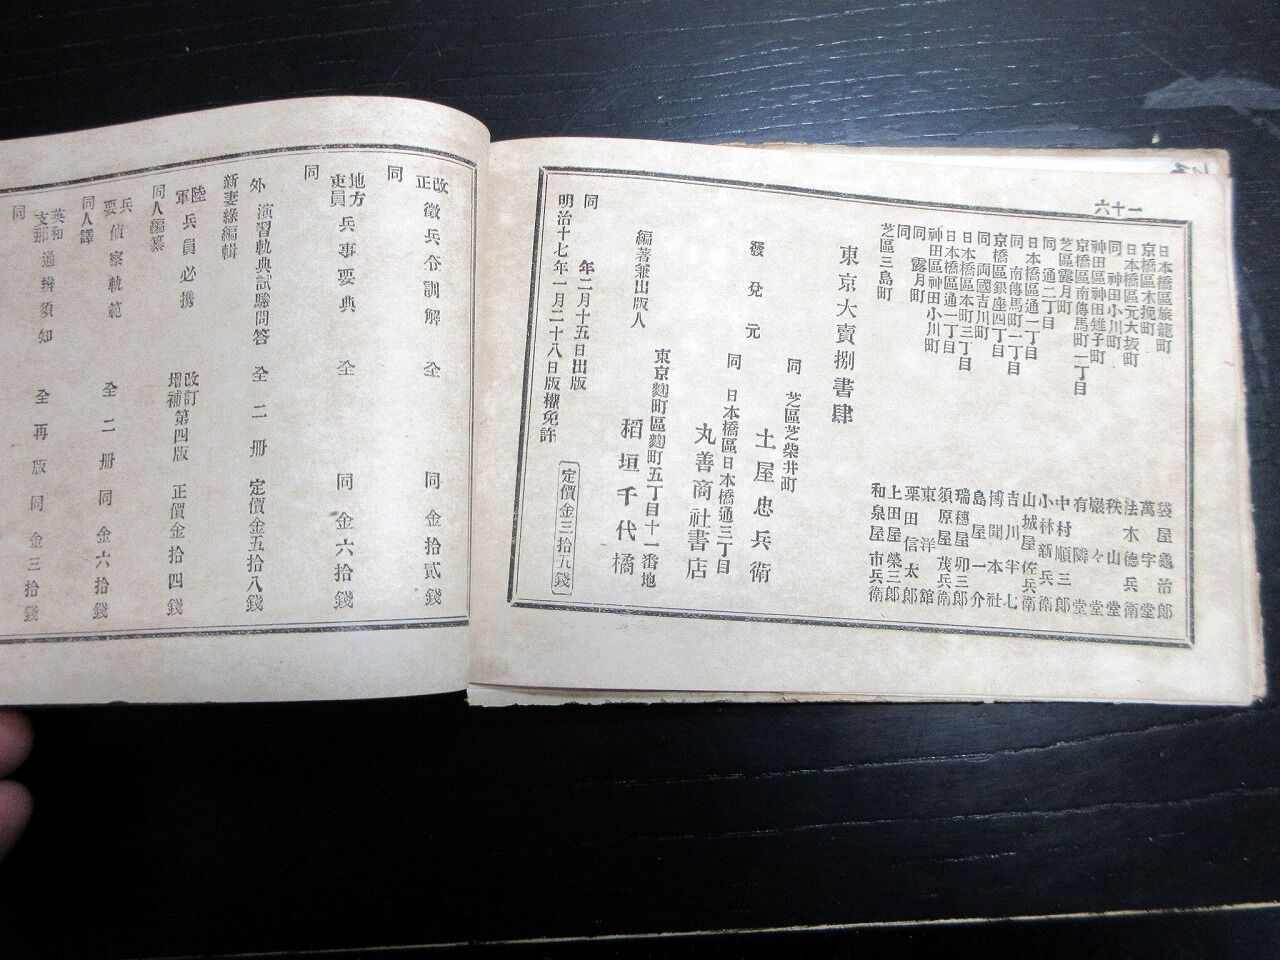 同
英和支那通辨須知 全 再版 同 金三拾錢
同人譯
兵要偵察軌範 全二冊 同 金六拾錢
同人編纂
陸軍兵員必携 改訂増補第四版 正價金拾四錢
新妻緑編輯
外演習軌典試驗問答 全二冊 定價金五拾八錢
同
地方吏員兵事要典 全 同 金六拾錢
同
改正徵兵令訓解 全 同 金拾貳錢
六十一
明治十七年一月二十八日版權免許
同 年二月十五日出版
定價金三拾五錢
編著兼出版人
稻垣千代橘
東京麴町區麴町五丁目十一番地
丸善商社書店
同 日本橋區日本橋通三丁目
發兌元
土屋忠兵衛
同 芝區芝柴井町
東京大賣捌書肆
芝區三島町 和泉屋市兵衛
同 上田屋榮三郎
同 露月町 栗田信太郎
神田區神田小川町 東洋館
日本橋區通一丁目 須原屋茂兵衛
日本橋區本町三丁目 瑞穗屋卯三郎
同 兩國吉川町 島屋一介
京橋區銀座四丁目 博聞本社
同 南傳馬町一丁目 吉川半七
日本橋區通二丁目 山城屋佐兵衛
同 通二丁目 小林新兵衛
芝區露月町 中村順三郎
京橋區南傳馬町二丁目 有隣堂
神田區神田雉子町 巖々堂
同 神田小川町 秩山堂
日本橋區元大坂町 法木德兵衛
京橋區木挽町 萬字堂
日本橋區旅籠町 袋屋龜治郎